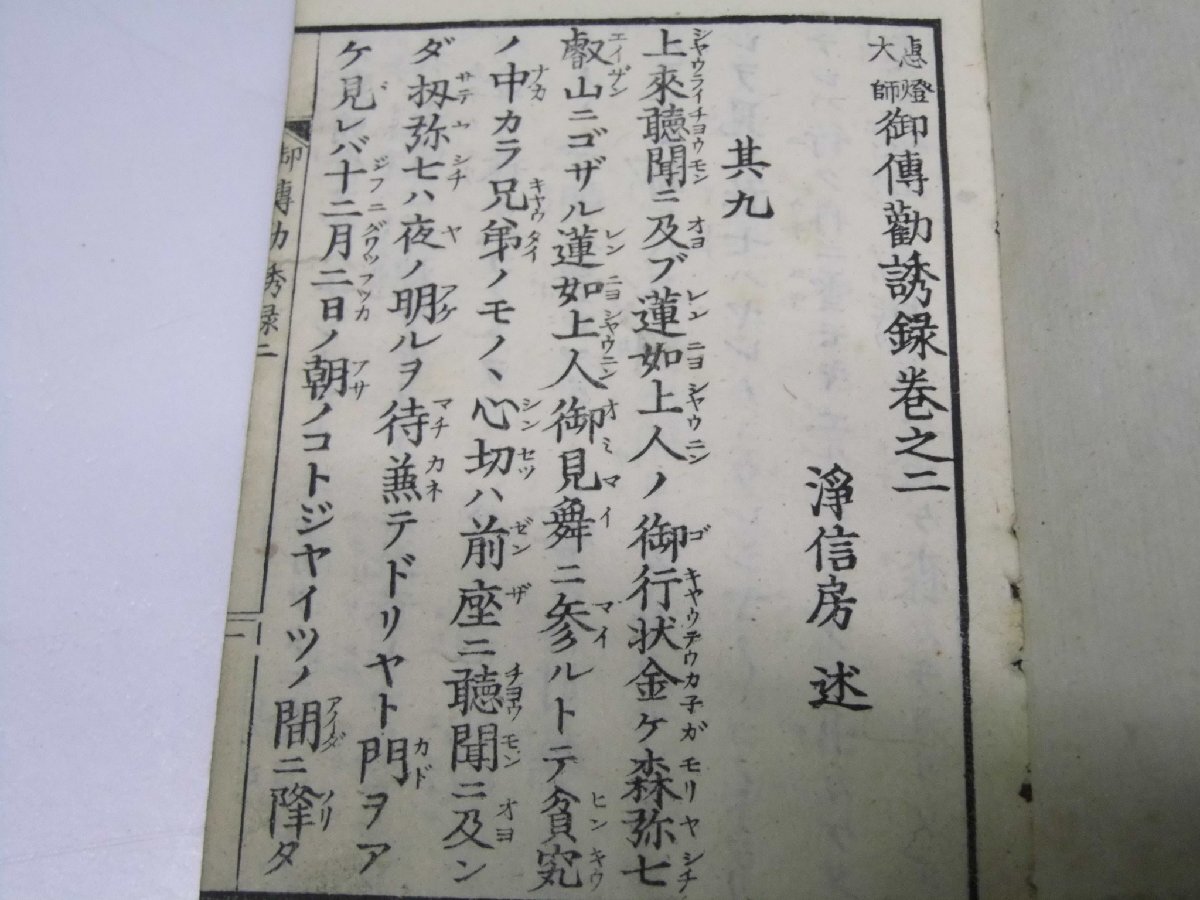 慧燈大師御傳勸誘録巻之二
淨信房 述
其九
上來聽聞ニ及ブ蓮如上人ノ御行状金ケ森弥七
叡山ニゴザル蓮如上人御見舞ニ参ルトテ貧究
ノ中カラ兄弟ノモノヽ心切ハ前座ニ聽聞ニ及ン
ダ扨弥七ハ夜ノ明ルヲ待兼テドリヤト門ヲア
ケ見レバ十二月二日ノ朝ノコトジヤイツノ間ニ降タ
御傳勸誘録二 一